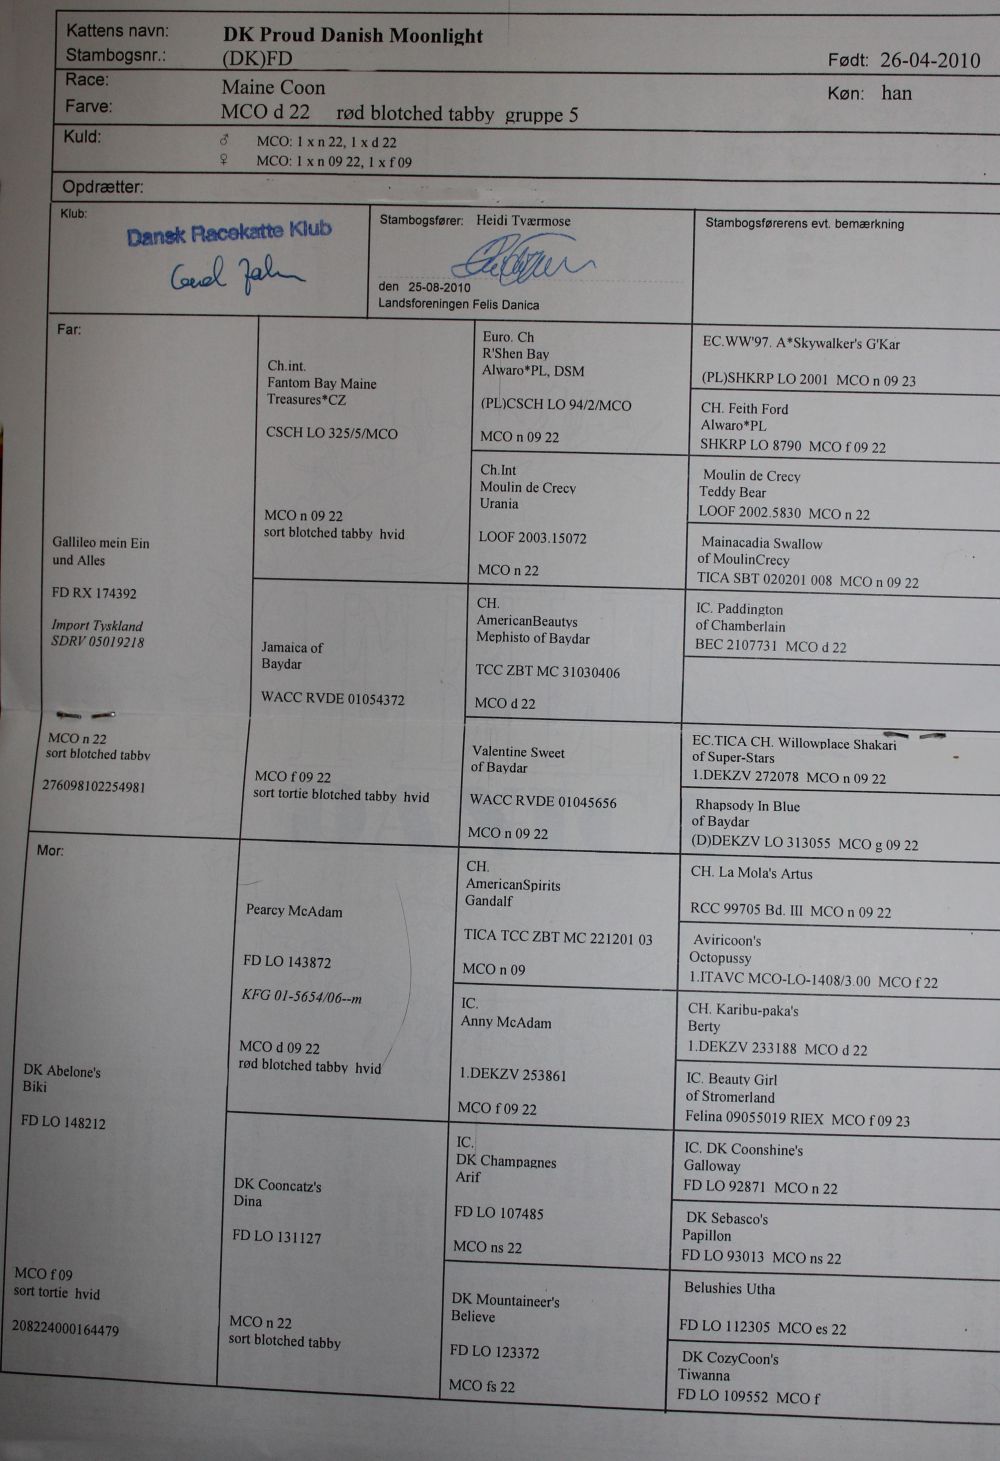 Kattens navn: DK Proud Danish Moonlight
Stambogsnr.: (DK)FD
Født: 26-04-2010
Race: Maine Coon
Køn: han
Farve: MCO d 22 rød blotched tabby gruppe 5
Kuld: ♂ MCO: 1 x n 22, 1 x d 22
♀ MCO: 1 x n 09 22, 1 x f 09
Opdrætter:
Klub:
Dansk Racekatte Klub
Stambogsfører: Heidi Tværmose
den 25-08-2010
Landsforeningen Felis Danica
Stambogsførerens evt. bemærkning
Far:
Gallileo mein Ein
und Alles
FD RX 174392
Import Tyskland
SDRV 05019218
MCO n 22
sort blotched tabby
276098102254981
Mor:
DK Abelone's
Biki
FD LO 148212
MCO f 09
sort tortie hvid
208224000164479
Ch.int.
Fantom Bay Maine
Treasures*CZ
CSCH LO 325/5/MCO
MCO n 09 22
sort blotched tabby hvid
Jamaica of
Baydar
WACC RVDE 01054372
MCO f 09 22
sort tortie blotched tabby hvid
Pearcy McAdam
FD LO 143872
KFG 01-5654/06--m
MCO d 09 22
rød blotched tabby hvid
DK Cooncatz's
Dina
FD LO 131127
MCO n 22
sort blotched tabby
Euro. Ch
R'Shen Bay
Alwaro*PL, DSM
(PL)CSCH LO 94/2/MCO
MCO n 09 22
Ch.Int
Moulin de Crecy
Urania
LOOF 2003.15072
MCO n 22
CH.
AmericanBeautys
Mephisto of Baydar
TCC ZBT MC 31030406
MCO d 22
Valentine Sweet
of Baydar
WACC RVDE 01045656
MCO n 09 22
CH.
AmericanSpirits
Gandalf
TICA TCC ZBT MC 221201 03
MCO n 09
IC.
Anny McAdam
1.DEKZV 253861
MCO f 09 22
IC.
DK Champagnes
Arif
FD LO 107485
MCO ns 22
DK Mountaineer's
Believe
FD LO 123372
MCO fs 22
EC.WW'97. A*Skywalker's G'Kar
(PL)SHKRP LO 2001 MCO n 09 23
CH. Feith Ford
Alwaro*PL
SHKRP LO 8790 MCO f 09 22
Moulin de Crecy
Teddy Bear
LOOF 2002.5830 MCO n 22
Mainacadia Swallow
of MoulinCrecy
TICA SBT 020201 008 MCO n 09 22
IC. Paddington
of Chamberlain
BEC 2107731 MCO d 22
EC.TICA CH. Willowplace Shakari
of Super-Stars
1.DEKZV 272078 MCO n 09 22
Rhapsody In Blue
of Baydar
(D)DEKZV LO 313055 MCO g 09 22
CH. La Mola's Artus
RCC 99705 Bd. III MCO n 09 22
Aviricoon's
Octopussy
1.ITAVC MCO-LO-1408/3.00 MCO f 22
CH. Karibu-paka's
Berty
1.DEKZV 233188 MCO d 22
IC. Beauty Girl
of Stromerland
Felina 09055019 RIEX MCO f 09 23
IC. DK Coonshine's
Galloway
FD LO 92871 MCO n 22
DK Sebasco's
Papillon
FD LO 93013 MCO ns 22
Belushies Utha
FD LO 112305 MCO es 22
DK CozyCoon's
Tiwanna
FD LO 109552 MCO f